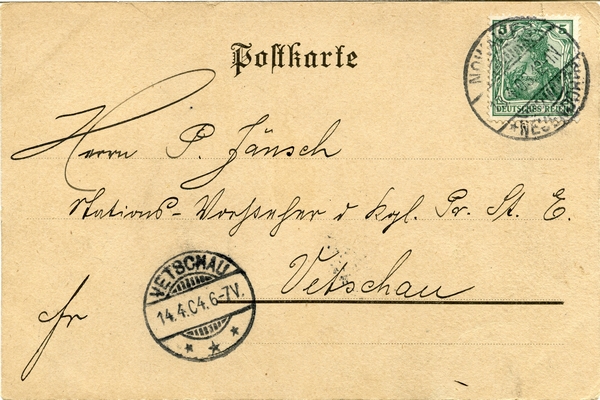 Postkarte
5
DEUTSCHES REICH
Herrn P. Jänsch
Stations-Vorsteher d. Kgl. Pr. St. E.
Vetschau
fr
VETSCHAU
14.4.04.6-7V.